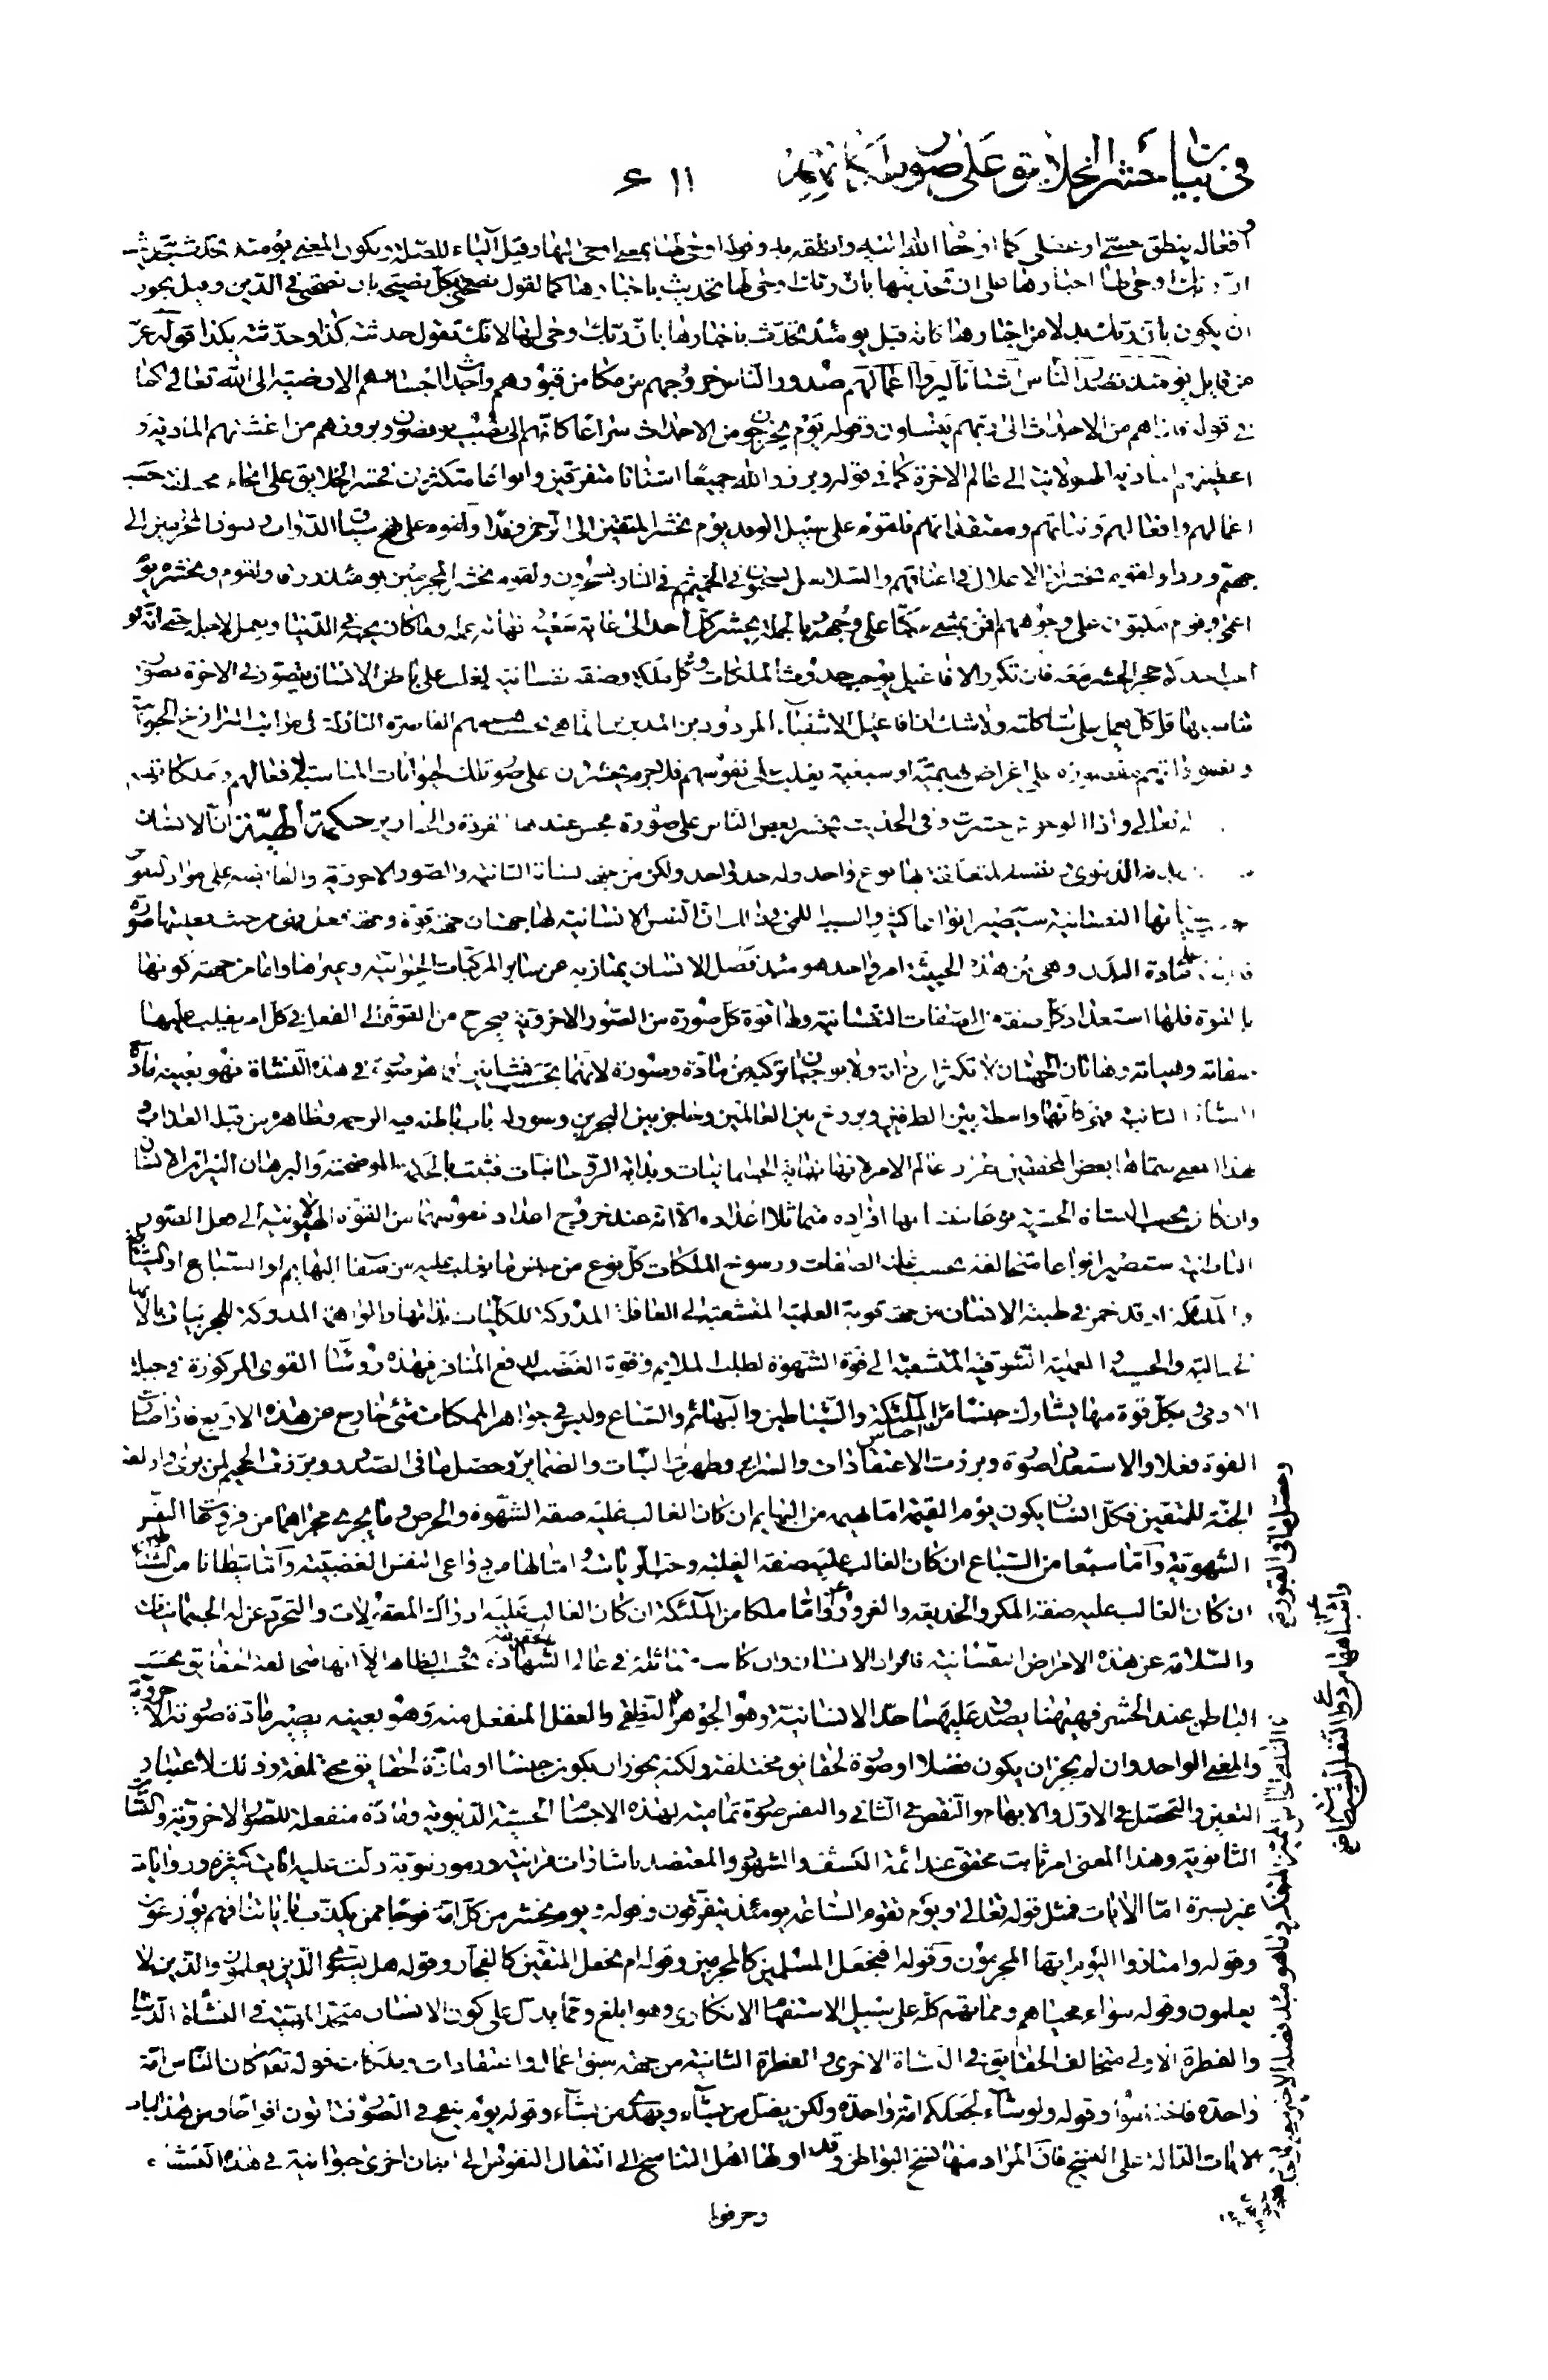 في بيان حشر الخلائق على صور
افعاله بنطق حسي او عقلي كما اوحى الله اليه وانطقه به وقوله اوحى لها بمعنى اوحى اليها وقيل الباء للصلة ويكون المعنى يومئذ تحدث بتحديث
ان ربك اوحى لها اخبارها على ان تحديثها بان ربك اوحى لها تحديث باخبارها كما تقول نصحتني كل نصيحة بان نصحتني في الدين وقيل يجوز
ان يكون بان ربك بدلا من اخبارها كانه قيل يومئذ تحدث باخبارها بان ربك اوحى لها لانك تقول حدثته كذا وحدثته بكذا قوله عز
من قايل يومئذ يصدر الناس اشتاتا ليروا اعمالهم صدور الناس خروجهم من مكامن قبورهم واحداث اجسادهم الارضية الى الله تعالى كما
في قوله فاذاهم من الاحداث الى ربهم ينسلون وقوله يوم يخرجون من الاجداث سراعا كانهم الى نصب يوفضون وبروزهم من اغشيتهم المادية و
الى عالم الاخرة كما في قوله وبرزوا لله جميعا اشتاتا متفرقين وانواعا متكثرين فحشر الخلايق على انحاء مختلفة حسب
اعمالهم وافعالهم ونياتهم ومعتقداتهم فلقوم على سبيل الوفد يوم نحشر المتقين الى الرحمن وفدا ولقوم على نهج سياق الدواب ونسوق المجرمين الى
جهنم وردا ولقوم اذ الاغلال في اعناقهم والسلاسل يسحبون في الحميم ثم في النار يسجرون ولقوم نحشر المجرمين يومئذ زرقا ولقوم ونحشره يوم
اعمى ولقوم مكبون على وجوههم افمن يمشي مكبا على وجهه وبالجملة يحشر كل احد الى غاية سعيه نهاية عمله وما كان يحبه في الدنيا ويعمل لاجله حتى انه لو
احب احد حجر الحشر معه فان تكرر الافاعيل يوجب حدوث الملكات وكل ملكة وصفة نفسانية يغلب على باطن الانسان يتصور في الاخرة بصورة
تناسبها قل كل يعمل على شاكلته ولا شك ان افاعيل الاشقياء المردودين انما هي بحسب هممهم القاصرة النازلة في مراتب البرازخ الحيوانية
على اغراض بهيمية او سبعية يغلب على نفوسهم فلا جرم يحشرون على صور تلك الحيوانات المناسبة لافعالهم وملكاتهم
تعالى واذا الوحوش حشرت وفي الحديث يحشر بعض الناس على صورة يحسن عندها القردة والخنازير حكمة الهية ان الانسان
نوع واحد وله حد واحد ولكن من جهة نشأته الثانية والصور الاخروية والفايضة على مواد
النفسانية سيصير انواعا كثيرة والسبب اللمي في ذلك ان النفس الانسانية لها جهتان جهة قوة وجهة فعل فهي من حيث فعليتها صورة
لمادة البدن وهي من هذه الحيثية امر واحد هو مبدء فصل الانسان يمتاز به عن ساير المركبات الحيوانية وغيرها واما من جهة كونها
بالقوة فلها استعداد كل صفة من الصفات النفسانية ولها قوة كل صورة من الصور الاخروية فيخرج من القوة الى الفعل في كل امر يغلب عليها
صفاته وهيئاته وهاتان الجهتان لا تكثرا ذاته ولا يوجبان تركبه من مادة وصورة لانهما بحسب نشأتين فما هو صورة في هذه النشأة فهو بعينه مادة
النشأة الثانية فهو كانها واسطة بين الطرفين وبرزخ بين العالمين وحاجز بين البحرين وسور له باب باطنه فيه الرحمة وظاهره من قبله العذاب و
هذا المعنى سماها بعض المحققين طراز عالم الامر لانها نهاية الجسمانيات وبداية الروحانيات فثبت بالحكمة الموضحة والبرهان النير ان الانسان
وان كان بحسب النشأة الحسية نوعا واحدا افراده متماثلة اعداده الا انه عند خروج اعداد نفوسها من القوة الهيولانية الى فعل الصور
الباطنية ستصير انواعا متخالفة بحسب غلبة الصفات ورسوخ الملكات كل نوع من جنس ما يغلب عليه من صفات البهايم او السباع او الشياطين
والملائكة اذ قد خمر في طينة الانسان من جهة قوية العلمية المنشعبة الى العاقلة المدركة للكليات بذاتها والواهمة المدركة للجزئيات بالالات
العملية الشوقية المتشعبة الى قوة الشهوة لطلب الملايم وقوة الغضب لدفع المنافر فهذه رؤساء القوى المركوزة في جبلة
الادمي بكل قوة منها يشارك جنسا من اجناس الملئكة والشياطين والبهائم والسباع وليس في جواهر الممكنات شيء خارج عن هذه الاربع فاذا صارت
القوة فعلا والاستعداد صورة وبرزت الاعتقادات والسراير وظهرت النيات والضماير وحصل ما في الصدور وبرزت الجحيم لمن يرى وازلفت
الجنة للمتقين فكل انسان يكون يوم القيمة اما بهيمة من البهايم ان كان الغالب عليه صفة الشهوة والحرص وما يجري مجراهما من فروعها النفس
الشهوية واما سبعا من السباع ان كان الغالب عليه صفة الغلبة وحب الرياسة امثالها من دواعي النفس الغضبية واما شيطانا من الشياطين
ان كان الغالب عليه صفة المكر والخديعة والغرور واما ملكا من الملئكة ان كان الغالب عليه ادراك المعقولات والتجرد عن الجسمانيات
والسلامة عن هذه الامراض النفسانية فافراد الانسان وان كانت متماثلة في عالم الشهادة بحسب الظاهر الا انها متخالفة الحقايق بحسب
الباطن عند الحشر فهيهنا يصدق عليها حد الانسانية وهو الجوهر النطقي والعقل المنفعل منه وهو بعينه يصير مادة صورته الاخروية
والمعنى الواحد وان لم يجز ان يكون فصلا او صورة لحقايق مختلفة ولكنه يجوز ان يكون جنسا او مادة لحقايق مختلفة وذلك لاعتبار
التعين والتحصل في الاول والابهام والنقص في الثاني والنفس صورة تمامية لهذه الاجسام الحسية الدنيوية ومادة منفعلة للصور الاخروية والنشأة
الثانوية وهذا المعنى امر ثابت محقق عند ائمة الكشف والشهود والمعتضد باشارات قرانية ورموز نبوية دلت عليه ايات كثيرة وروايات
غير يسيرة اما الايات فمثل قوله تعالى ويوم تقوم الساعة يومئذ يتفرقون وقوله ويوم نحشر من كل امة فوجا ممن يكذب باياتنا فهم يوزعون
وقوله وامتازوا اليوم ايها المجرمون وقوله افنجعل المسلمين كالمجرمين وقوله ام نجعل المتقين كالفجار وقوله هل يستوي الذين يعلمون والذين لا
يعلمون وقوله سواء محياهم ومماتهم كل على سبيل الاستفهام الانكاري وهو ابلغ ومما يدل على كون الانسان متحد الحقيقة في النشأة الدنيا
والفطرة الاولى متخالف الحقايق في النشأة الاخرى والفطرة الثانية من جهة سبق اعمال واعتقادات وملكات قوله تعالى كان الناس امة
واحدة فاختلفوا وقوله ولو شاء لجعلكم امة واحدة ولكن يضل من يشاء ويهدي من يشاء وقوله يوم ينفخ في الصور فتاتون افواجا ومن هذا الباب
الايات الدالة على المسخ فان المراد منها نسخ البواطن وقد اولها اهل التناسخ الى انتقال النفوس الى ابدان اخرى حيوانية في هذه النشأة
وحرفوا
وحصل ما في القبور